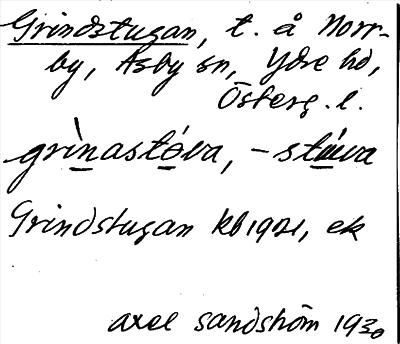 Grindstugan, t. å Norr-
by, Asby sn, Ydre hd,
Österg. l.
grìnastóva, – stúva
Grindstugan kb 1921, ek
axel sandström 1930